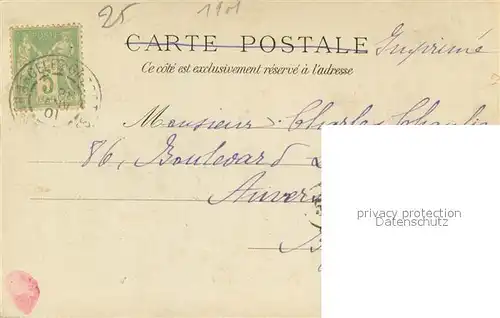 25 1901
CARTE POSTALE Imprimé
Ce côté est exclusivement réservé à l'adresse
Monsieur Charles
86, Boulevard
Anver
privacy protection
Datenschutz